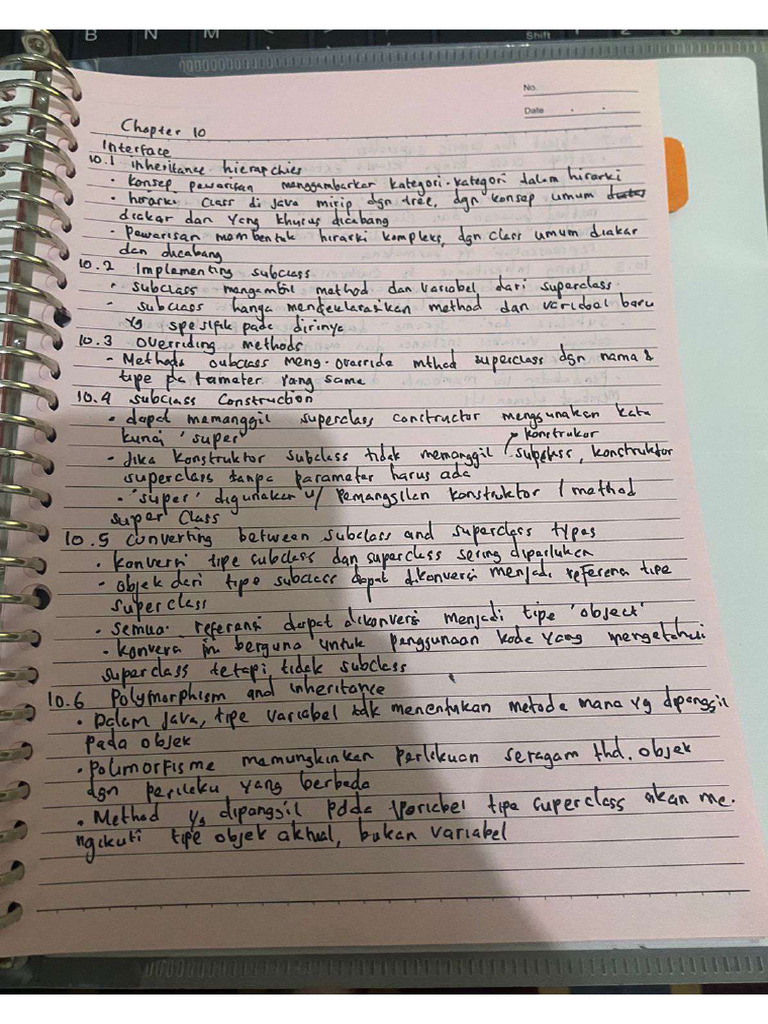 B N M < > ? Shift
No.
Date
Chapter 10
Interface
10.1 inheritance hierarchies
• konsep pewarisan menggambarkan kategori-kategori dalam hirarki
• hirarki class di java mirip dgn tree, dgn konsep umum
diakar dan yang khusus dicabang
- pewarisan membentuk hirarki kompleks, dgn class umum diakar
dan dicabang
10.2 Implementing subclass
• subclass mengambil method dan variabel dari superclass
- subclass hanya mendeklarasikan method dan variabel baru
yg spesifik pada dirinya
10.3 Overriding methods
- Methods subclass meng-override mthod superclass dgn nama &
tipe parameter yang sama
10.4 Subclass Construction
• dapat memanggil superclass constructor menggunakan kata
kunci 'super'
konstrukor
- Jika konstruktor subclass tidak memanggil superclass, konstruktor
superclass tanpa parameter harus ada
- 'super' digunakan u/ pemanggilan konstruktor / method
super class
10.5 Converting between subclass and superclass types
• konversi tipe subclass dan superclass sering diperlukan
- objek dari tipe subclass dapat dikonversi menjadi referensi tipe
superclass
• semua referensi dapat dikonversi menjadi tipe 'object'
• konversi ini berguna untuk penggunaan kode yang mengetahui
superclass tetapi tidak subclass
10.6 Polymorphism and inheritance
• Dalam java, tipe variabel tdk menentukan metode mana yg dipanggil
pada objek
• polimorfisme memungkinkan perlakuan seragam thd. objek
dgn perilaku yang berbeda
• Method yg dipanggil pada variabel tipe superclass akan me-
ngikuti tipe objek aktual, bukan variabel